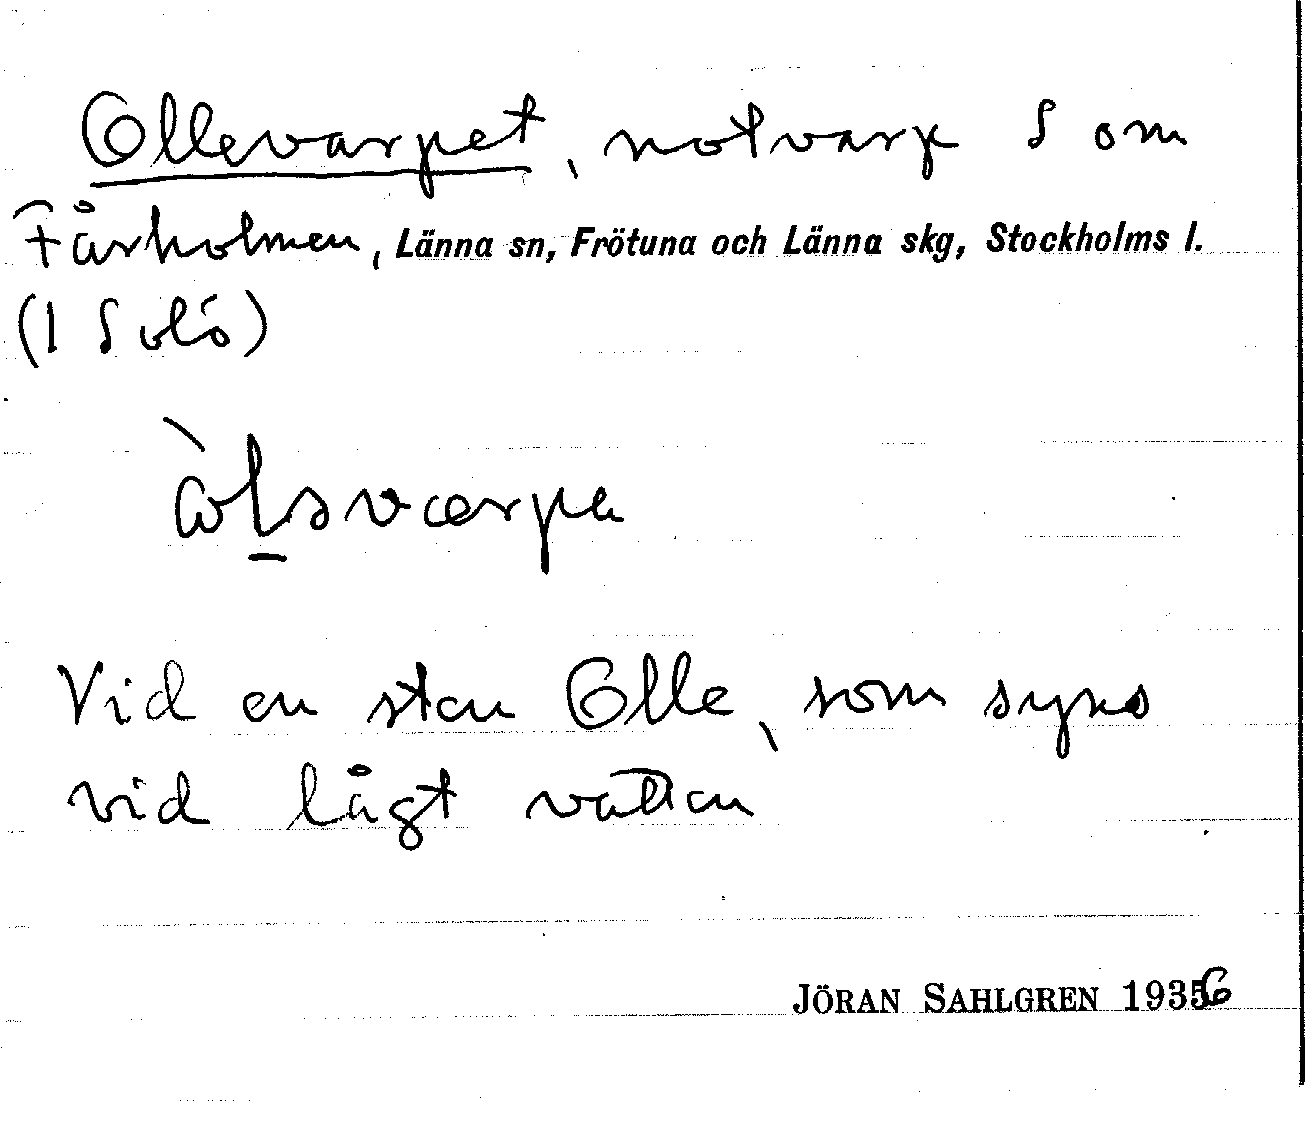 Ollevarpet, notvarp S om
Fårholmen, Länna sn, Frötuna och Länna skg, Stockholms l.
(1 Solö)
Vid en sten Olle, som synes
vid lågt vatten
JÖRAN SAHLGREN 1936